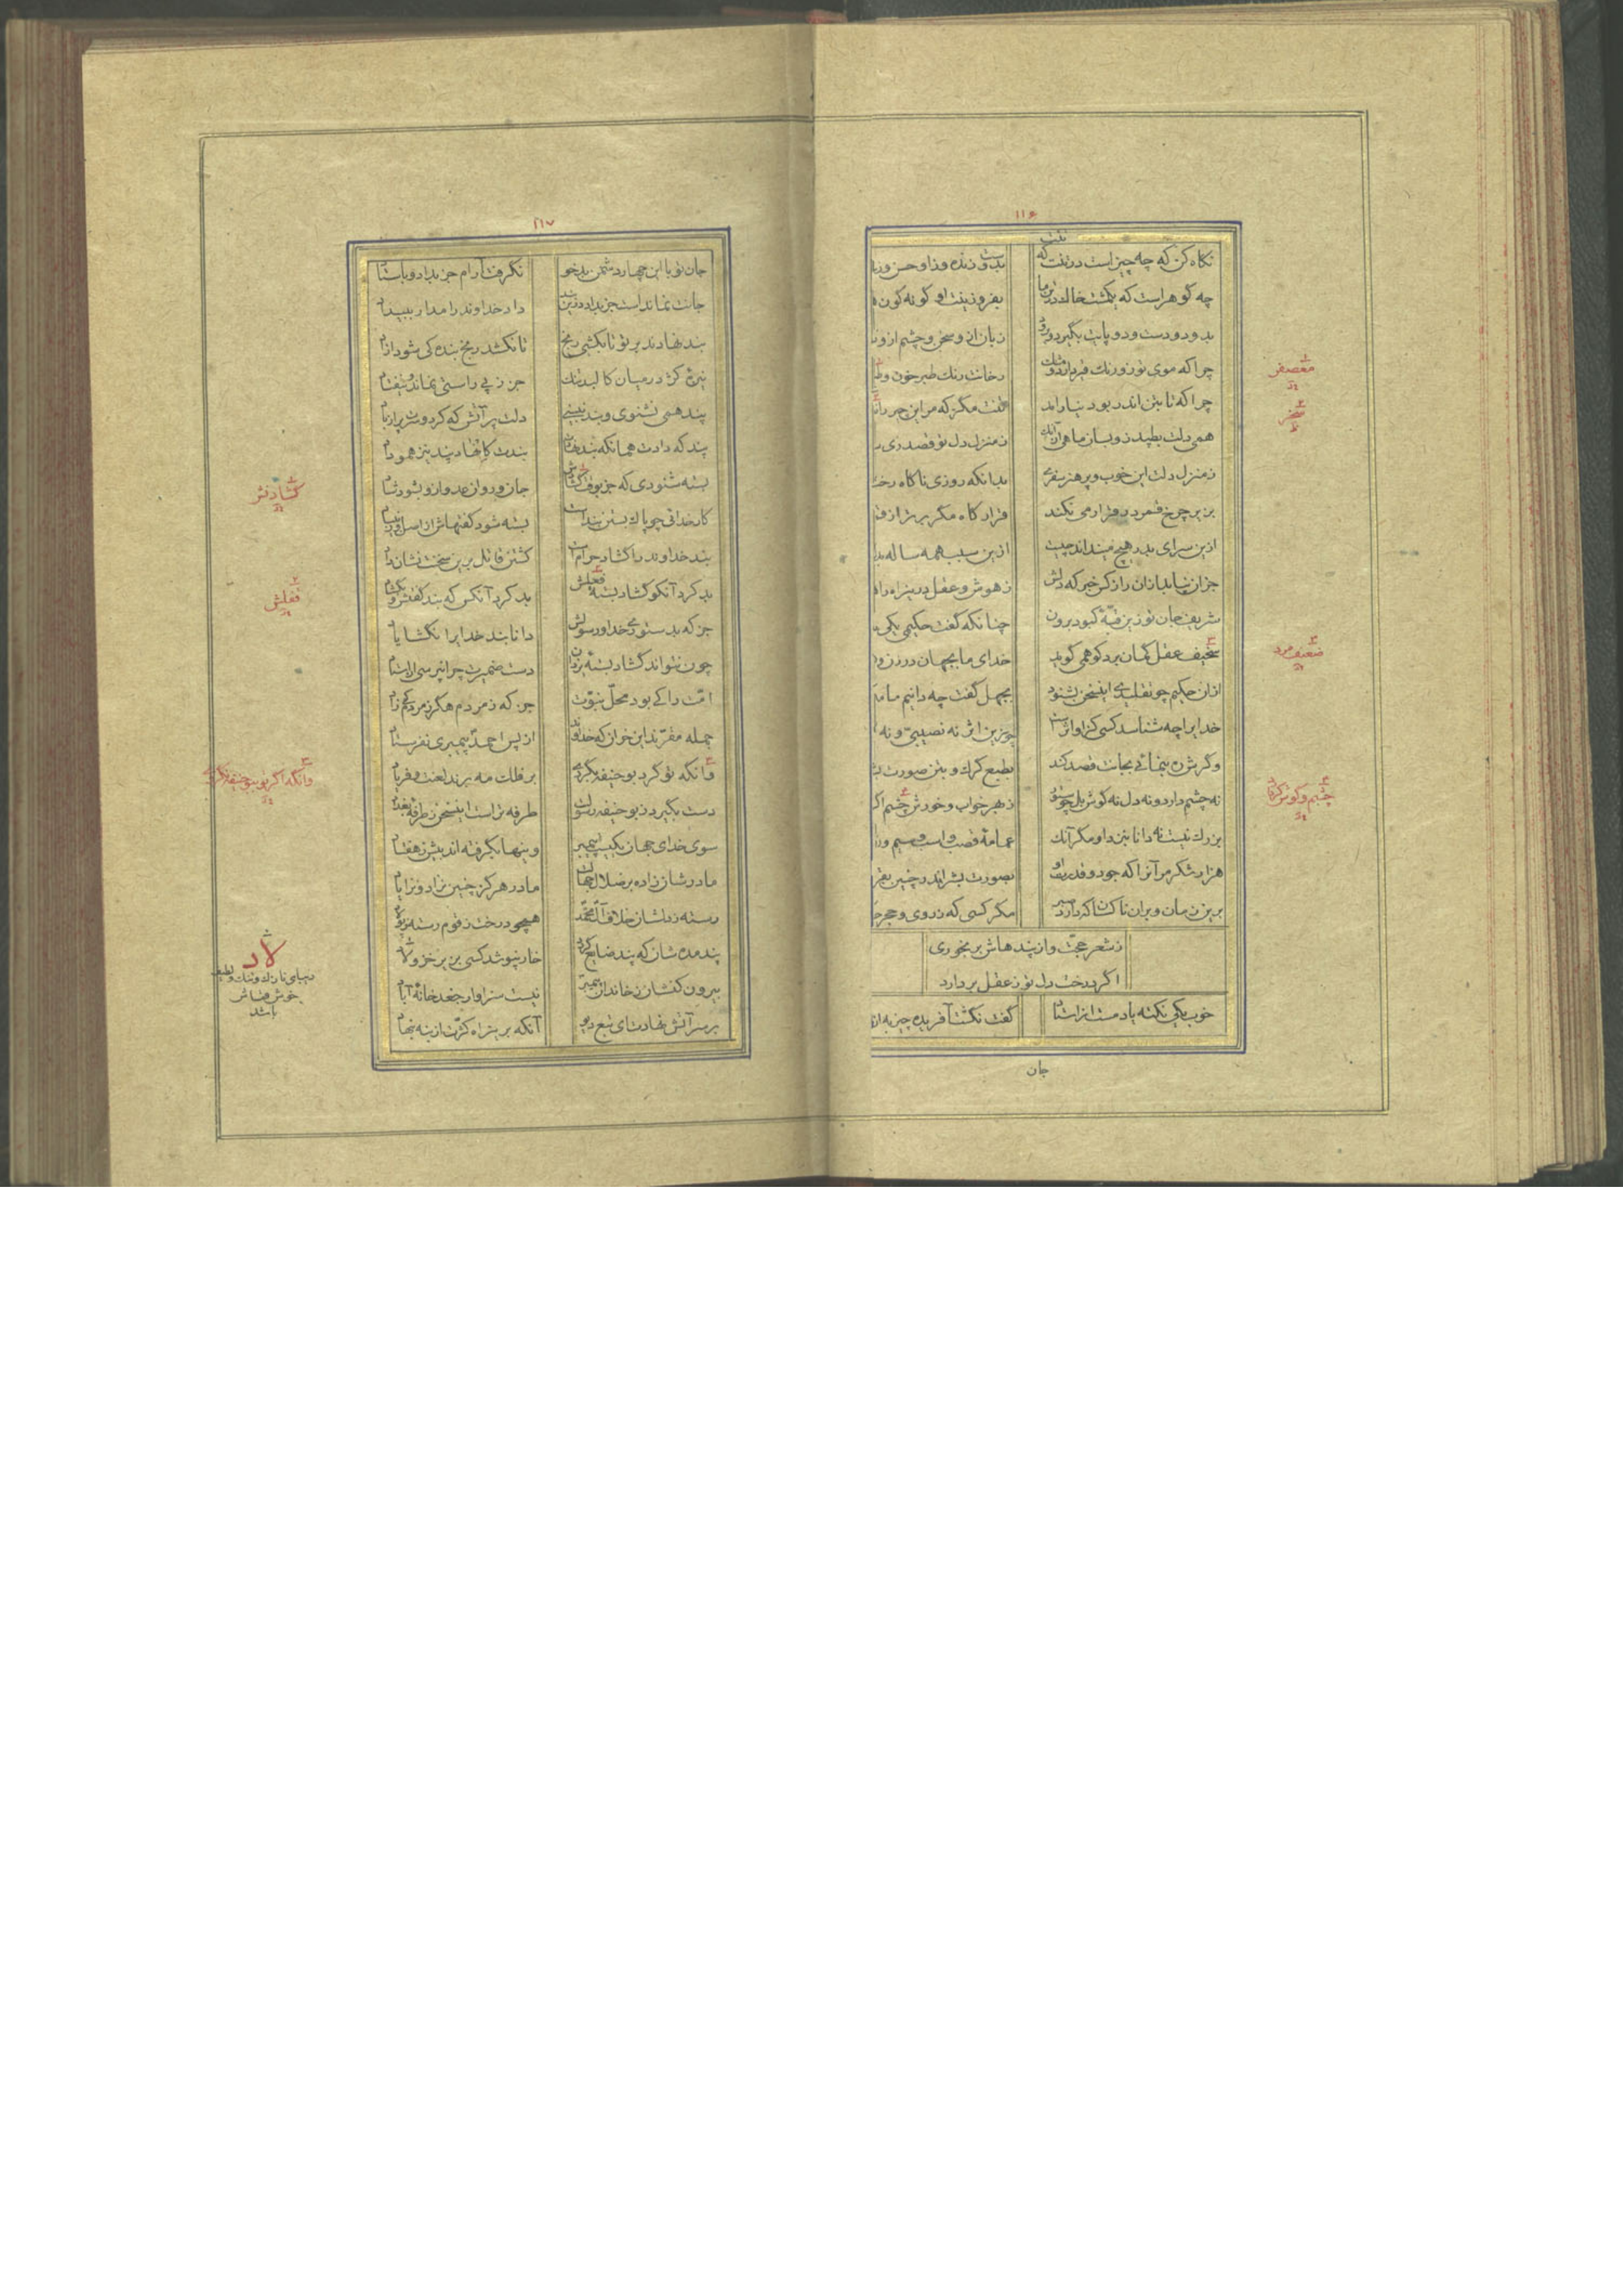 ۱۱۶
نگاه کن که چه چیز است در تنت که تنت بدوست زنده و زاو حسن و زیـ
چه گوهر است که یکمشت خاک در تن ما بفر و زینت او گونه گون
بدو دو دست و دو پایت بگیرد و برود زبان ازو سخن و چشم ازو
چرا که موی تو زو رنگ قیر دارد و مشک رخانت رنگ طبرخون و
چرا که تا بتن اندر بود نیاراید تنت مگر که مر این جرم
همی دلت بطپد زو بسان ماهی از آنک ز منزل دل تو قصد زی
ز منزل دلت این خوب و پر هنر سفری بدانکه روزی ناگاه رخت
بزیر چرخ قمر در قرار می نکند قرارگاه مگر برتر از
ازین سرای بدر هیچ می نداند چیست ازین سبب همه ساله
جز آن نیابد ازان راز کس خبر که دلش ز هوش و عقل درین راه
شریف جان تو زین قبهٔ کبود برون چنانکه گفت حکیمی یکی
سخیف عقل گمان برد کو همی گوید خدای ما بجهان در زن و
ازان حکیم چو تقلیدی این سخن بشنود بجهل گفت چه دانیم ما
خدایرا چه شناسد کسی کز او اثرست چو زین اثر نه نصیبی و نه
و گرش ره بنمائی بجانت قصد کند بطبع گرگ و بتن صورت
نه چشم دارد و نه دل نه گوش بل چو ستور ز بهر خواب و خورش چشم
بزرگ نیست نه دانا بنزد او مگر آنک عمامهٔ قصب و اسب و سیم و
هزار شکر مر آنرا که جود و قدرت او بصورت بشر اندر چنین
برین زمان و بران ناکسان که دارد صبر مگر کسی که ز روی و حجر
ز شعر حجت و از پندهاش بر بخوری
اگر درخت دل تو ز عقل بر دارد
خوب یکی نکته یادمست از استاد گفت نگشت آفریده چیز به از
جان
معصفر
سخر
ضعیف مرد
چشم و گوش
۱۱۷
جان تو با این چهار دشمن بدخو نگرفت آرام جز بداد و باستاد
جانت نمانداست جز بداد درین بند داد خداوند را مدار ببیداد
بند نهادند بر تو تا بکشی رنج تا نکشد رنج بنده کی شود آزاد
نیزهٔ کژ در میان کالبد تنگ جز ز پی راستی نماند و نیفتاد
پند همی نشنوی و بند نبینی دلت پر آتش که کرد و سر پر از باد
پند که دادت همانکه بند نهادت بندت کانهاد پند نیز همو داد
بسته شنودی که جز بوقت گشادش جان و روان عدو ازو بشود شاد
کار خدائی چو پاک بستن بندست بسته شود گفتهاش از اصل و ز بنیاد
بند خداوند را گشاد حرامست کشتن قاتل برین سخت نشان داد
بد کرد آنکو گشاد بسته قفلش بد کرد آنکس که بند گفتش و بگشاد
جز که بدستوری خدا و رسولش دانا بند خدایرا نگشایاد
چون نتواند گشاد بستهٔ یزدان دست ضمیرت چرا نپرسی از استاد
امت را کی بود محل نبوت جز که ز مردم هگرز مردم کی زاد
جمله مقرند این خران که خداوند از پس احمد پیمبری نفرستاد
وانگه تو کرد بو حنیفه بگردی بر فلکت مه برند لعنت و فریاد
دست بگیرد ز بو حنیفه رسولت طرفه تر است این سخن ز طرفهٔ بغداد
سوی خدای جهان یکیست پیمبر وینها بگرفته اند بیش ز هفتاد
مادرشان زاده بر ضلال جهالت مادر هرگز چنین نزاد و نزایاد
رسته ز دلشان خلاف آل محمد همچو درخت زقوم رسته ز پولاد
پند مده شان که پند ضایع گردد خار نپوشد کسی بزیر خز و لاد
بیرون کنشان ز خاندان پیمبر نیست سزاوار جغد خانهٔ آباد
بر سر آتش نهادت ای تبع دیو آنکه بر این راه کژت از بنه بنهاد
گشادنش
قفلش
وانگه اگر تو ببو حنیفه نگروی
لاد
دیبای نازک و تنک و لطیف
خوش قماش
باشد